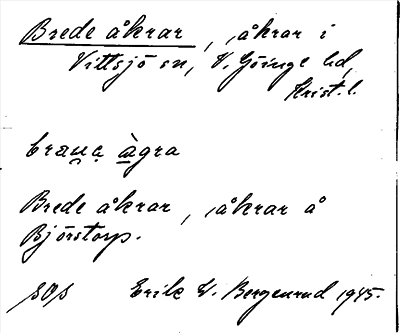 Brede åkrar, åkrar i
Vittsjö sn, V. Göinge hd,
Krist. l.
àgra
Brede åkrar, åkrar å
Bjärstorp.
Erik W. Bergenrud 1945.